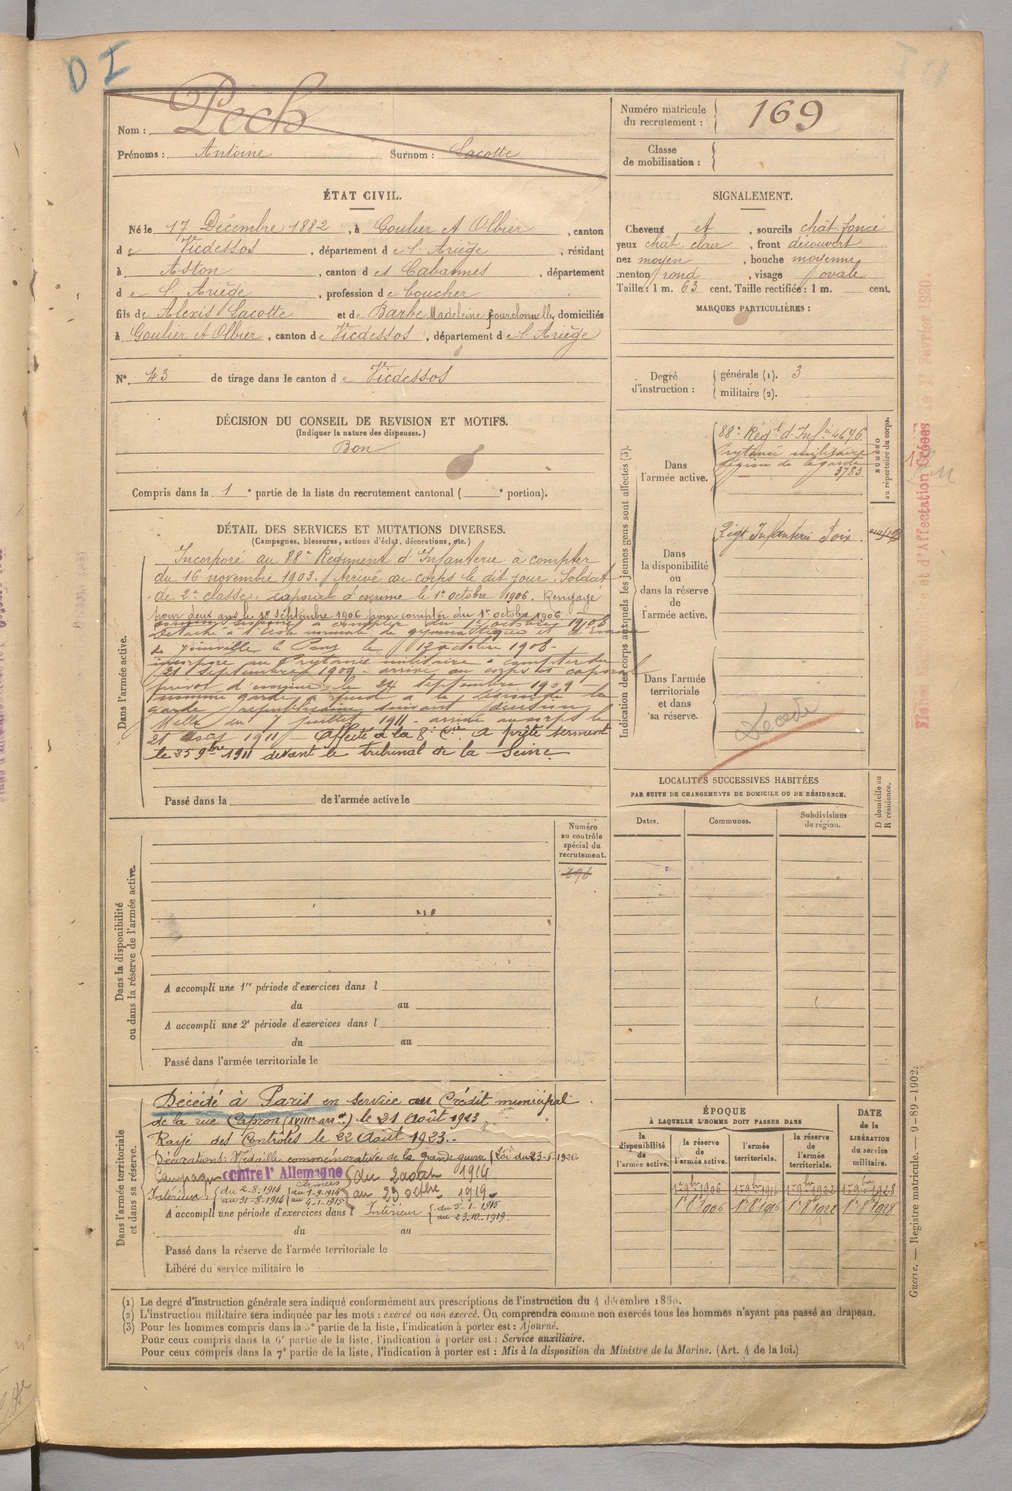 D I
Nom : Pech
Prénoms : Antoine Surnom : Lacotte
Numéro matricule du recrutement : 169
Classe de mobilisation :
ÉTAT CIVIL.
Né le 17 Décembre 1882, à Goulier et Olbier, canton
de Vicdessos, département de l'Ariège, résidant
à Aston, canton des Cabannes, département
de l'Ariège, profession de boucher
fils de Alexis Lacotte et de Barbe Madeleine, domiciliés
à Goulier et Olbier, canton de Vicdessos, département de l'Ariège
N° 43 de tirage dans le canton de Vicdessos
SIGNALEMENT.
Cheveux et sourcils chât foncé
yeux chât clair, front découvert
nez moyen, bouche moyenne
menton rond, visage ovale
Taille : 1 m. 63 cent. Taille rectifiée : 1 m. cent.
MARQUES PARTICULIÈRES :
Degré d'instruction : générale (1). 3
militaire (2).
DÉCISION DU CONSEIL DE REVISION ET MOTIFS.
(Indiquer la nature des dispenses.)
Bon
Compris dans la 1e partie de la liste du recrutement cantonal ( e portion).
DÉTAIL DES SERVICES ET MUTATIONS DIVERSES.
(Campagnes, blessures, actions d'éclat, décorations, etc.)
Dans l'armée active.
Incorporé au 88e Régiment d'Infanterie à compter
du 16 novembre 1903. Arrivé au corps le dit jour. Soldat
de 2e classe. caporal d'escrime le 1er octobre 1906. Rengagé
pour deux ans le 1er septembre 1906 pour compter du 1er octobre 1906
à compter du 1er octobre 1908
détaché à l'école normale de gymnastique et d'escrime
de Joinville le Pont le 12 octobre 1908
incorporé au Prytanée militaire à compter du
21 septembre 1909 - arrivé au corps caporal
prévot d'escrime le 24 septembre 1909
garde à pied à la
garde républicaine suivant décision
Melle du 7 juillet 1911 - arrivé au corps le
21 août 1911 Affecté à la 8e Cie a prêté serment
le 25 9bre 1911 devant le tribunal de la Seine
Passé dans la de l'armée active le
Indication des corps auxquels les jeunes gens sont affectés (3).
NUMÉRO au répertoire du corps.
Dans l'armée active.
88e Régt d'Infie 4696
Prytanée militaire
Légion de la garde
3783
Dans la disponibilité ou dans la réserve de l'armée active.
Régt Infanterie Foix
Dans l'armée territoriale et dans sa réserve.
Décédé
LOCALITÉS SUCCESSIVES HABITÉES
PAR SUITE DE CHANGEMENTS DE DOMICILE OU DE RÉSIDENCE.
Dates. Communes. Subdivisions de région. D domicile ou R résidence.
Dans la disponibilité ou dans la réserve de l'armée active.
Numéro au contrôle spécial du recrutement.
A accompli une 1re période d'exercices dans l
du au
A accompli une 2e période d'exercices dans l
du au
Passé dans l'armée territoriale le
Dans l'armée territoriale et dans sa réserve.
Décédé à Paris en service au Crédit municipal
de la rue Capron (XVIIIe arrt) le 21 Août 1923
Rayé des Contrôles le 22 Août 1923.
Décorations : Médaille commémorative de la grande guerre (Loi du 23-6-1920
Campagne contre l'Allemagne du 2 août 1914
au 23 octbre 1919
Intérieur : du 2-8-1914 au 31-8-1914 Armées du 1-9-1914 au 4-1-1915
A accompli une période d'exercices dans l Intérieur du 5-1-1915 au 23-10-1919.
du au
Passé dans la réserve de l'armée territoriale le
Libéré du service militaire le
ÉPOQUE
À LAQUELLE L'HOMME DOIT PASSER DANS
la disponibilité de l'armée active. la réserve de l'armée active. l'armée territoriale. la réserve de l'armée territoriale.
DATE de la LIBÉRATION du service militaire.
(1) Le degré d'instruction générale sera indiqué conformément aux prescriptions de l'instruction du 4 décembre 1889.
(2) L'instruction militaire sera indiquée par les mots : exercé ou non exercé. On comprendra comme non exercés tous les hommes n'ayant pas passé au drapeau.
(3) Pour les hommes compris dans la 5e partie de la liste, l'indication à porter est : Ajourné.
Pour ceux compris dans la 6e partie de la liste, l'indication à porter est : Service auxiliaire.
Pour ceux compris dans la 7e partie de la liste, l'indication à porter est : Mis à la disposition du Ministre de la Marine. (Art. 4 de la loi.)
Guerre. — Registre matricule. — 9-89-1902.